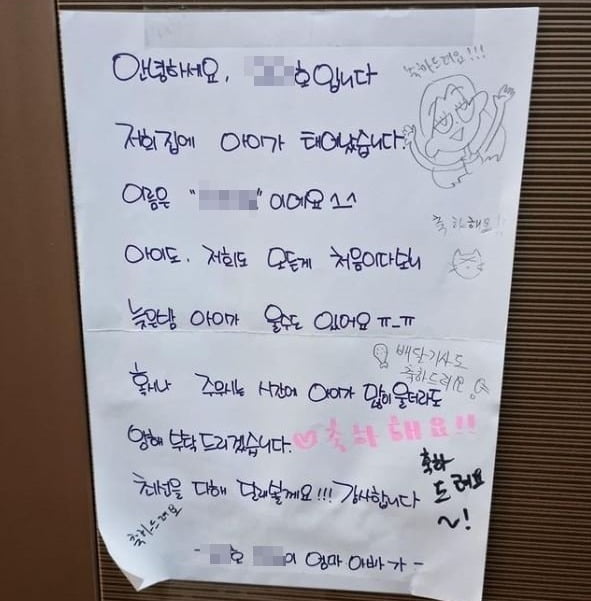 안녕하세요. 호입니다
축하드려요!!!
저희 집에 아이가 태어났습니다.
이름은 " " 이에요 ^_^
축하해요!!
아이도, 저희도 모든게 처음이다보니
늦은밤 아이가 울수도 있어요 ㅠ_ㅠ
배달기사도
축하드려요
혹시나 주무시는 시간에 아이가 많이 울더라도
양해 부탁드리겠습니다.
♡축하해요!!
축하
드려요
~!
최선을 다해 달래볼께요!!! 감사합니다
축하드려요
- 호 이 엄마 아빠가 -